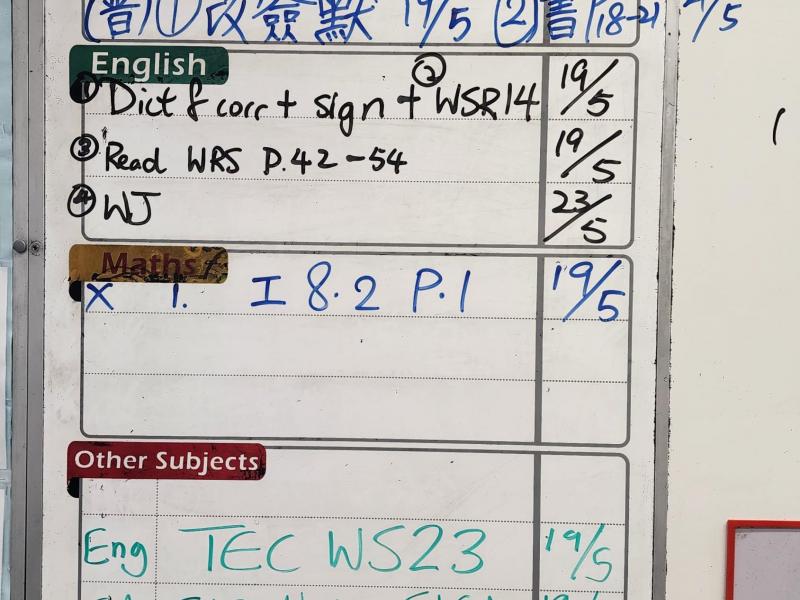 (普)①改簽默 19/5 ②書P18-21 2/5
English
① Dict & corr + sign + ② WSR14 19/5
③ Read WRS P.42-54 19/5
④ WJ 23/5
Maths
X 1. I 8.2 P.1 19/5
Other Subjects
Eng TEC WS23 19/5